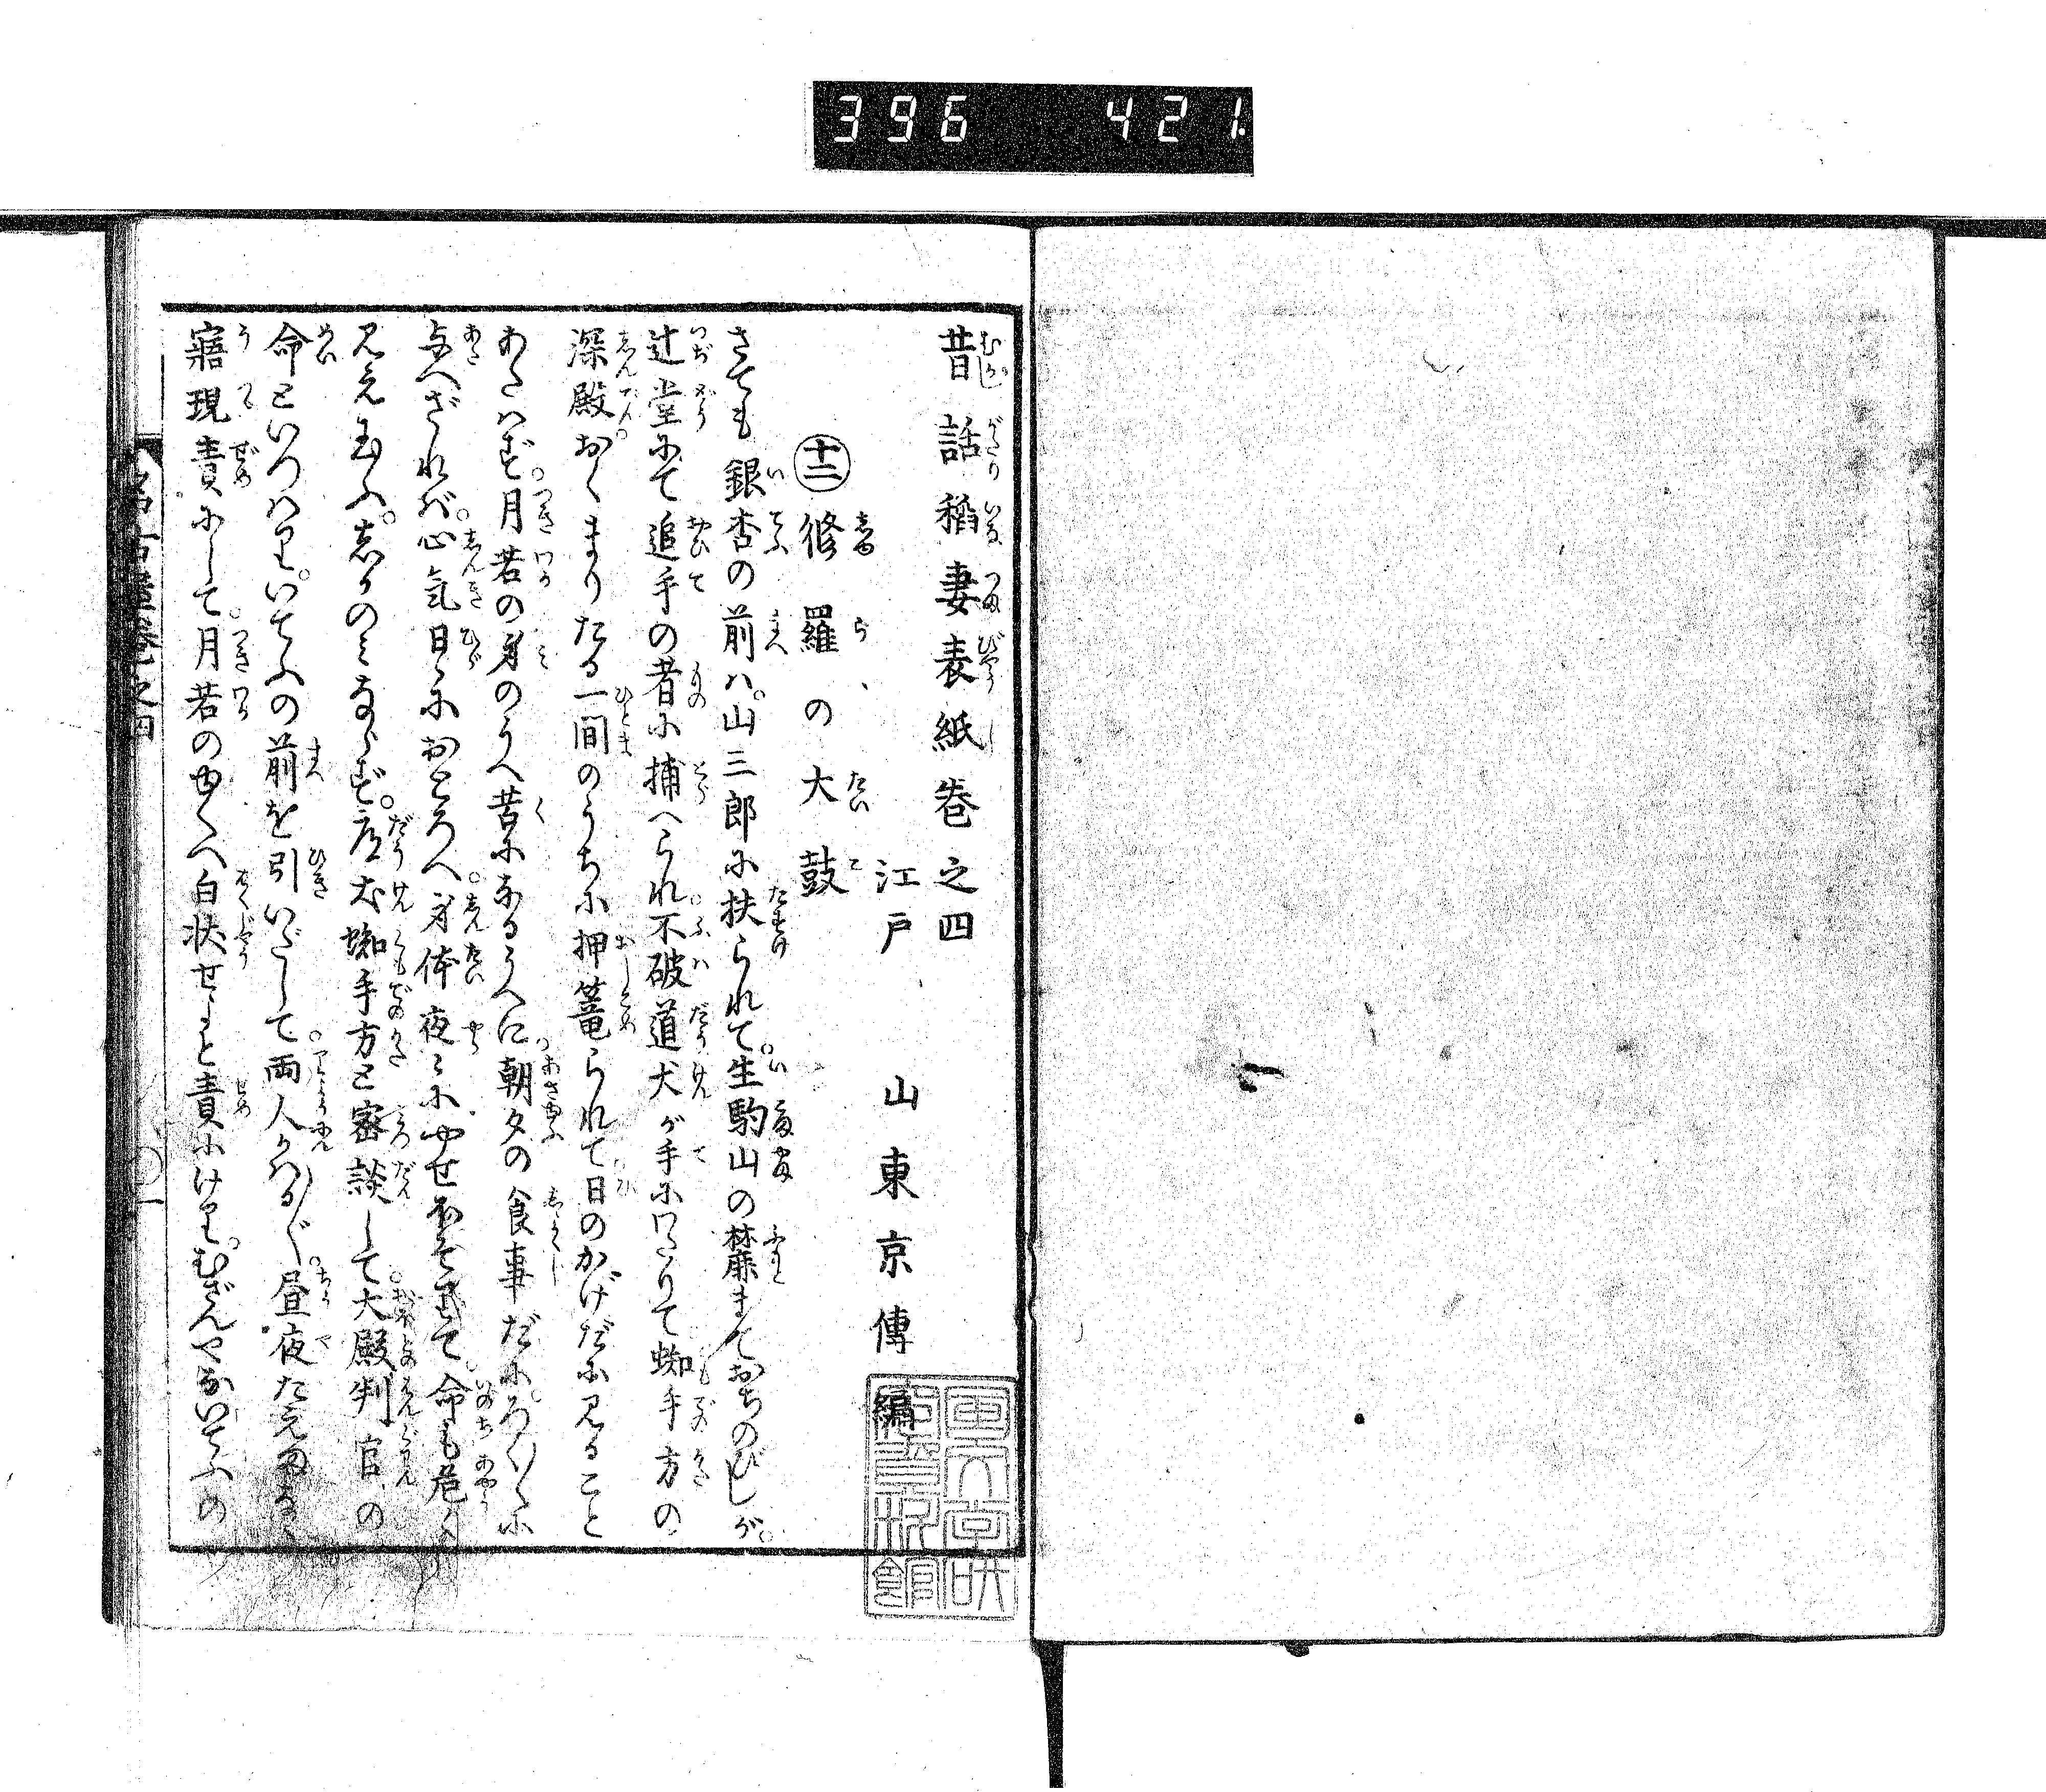 396 421
昔話稲妻表紙巻之四
江戸 山東京傳編
十二 修羅の大鼓
さても銀杏の前ハ。山三郎に扶られて。生駒山の麓までおちのびしが。
辻堂にて追手の者に捕へられ。不破道犬が手にわたりて蜘手方の
深殿。おくまりたる一間のうちに押篭られて。日のかげだに見ること
あたはず。月若の身のうへ苦になるうへに。朝夕の食事だに。
与へざれバ。心気日ゝにおとろへ。身体夜ゝにやせほそりて。命も危く
見え玉ふ。しかのみならず。道犬蜘手方と密談して。大殿判官の
命といつハり。いてふの前を引いだして。両人かはる〲。昼夜たえまなく
寤現責にして。月若のゆくへ白状せよと責にけり。むざんやないてふの